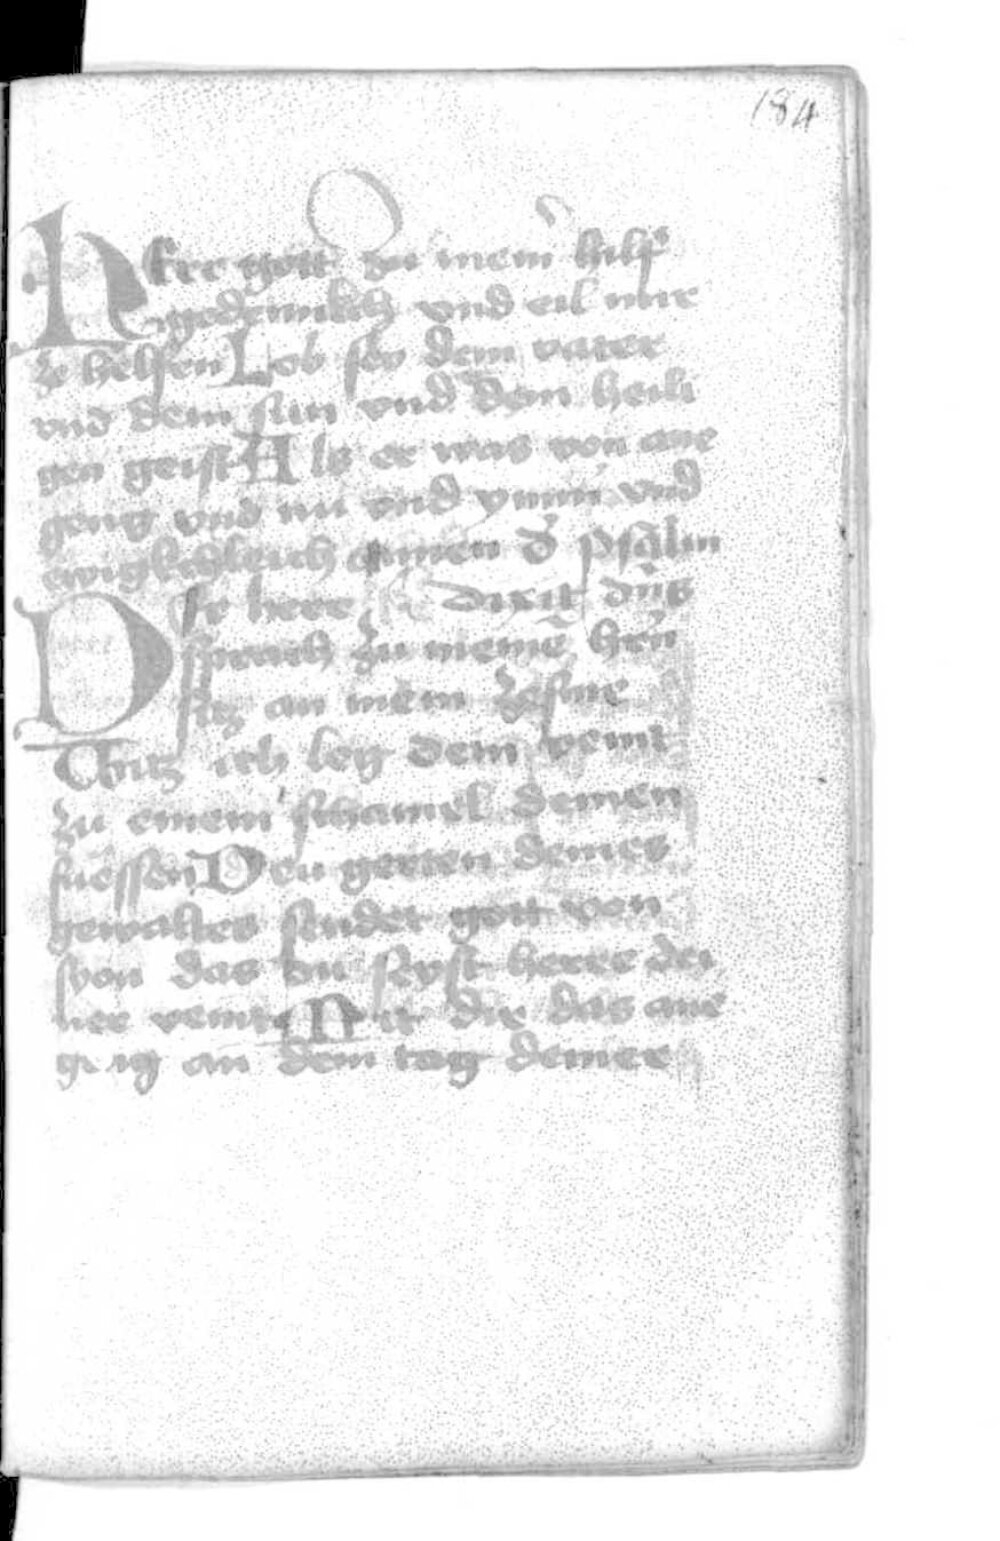 184
Herr gott zu meinͤ hilf
gedennkch vnd eil mir
ze helfen Lob sey dem vater
vnd dem sun vnd dem heili
gen geist Als er was von ane
geng vnd nu vnd ymmͤ vnd
ewigkchleich amen dͤ psalm
Der herr Dixit dn̄s
sprach zu meinē hern̄
sitz an mein zesme
Vntz ich leg dein veint
zu einem schamel deinen
fuessen Den gerten deines
gewaltes sendet gott von
syon das du seyst herre dei
ner veint Mit dir das ane
geng an dem tag deiner